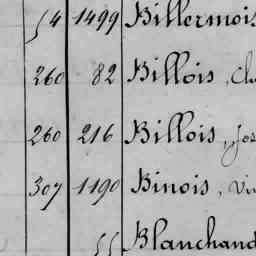 54 1499 Billermois
260 82 Billois, Cha
260 216 Billois, Jos
307 1190 Binois, Vi
55 Blanchand